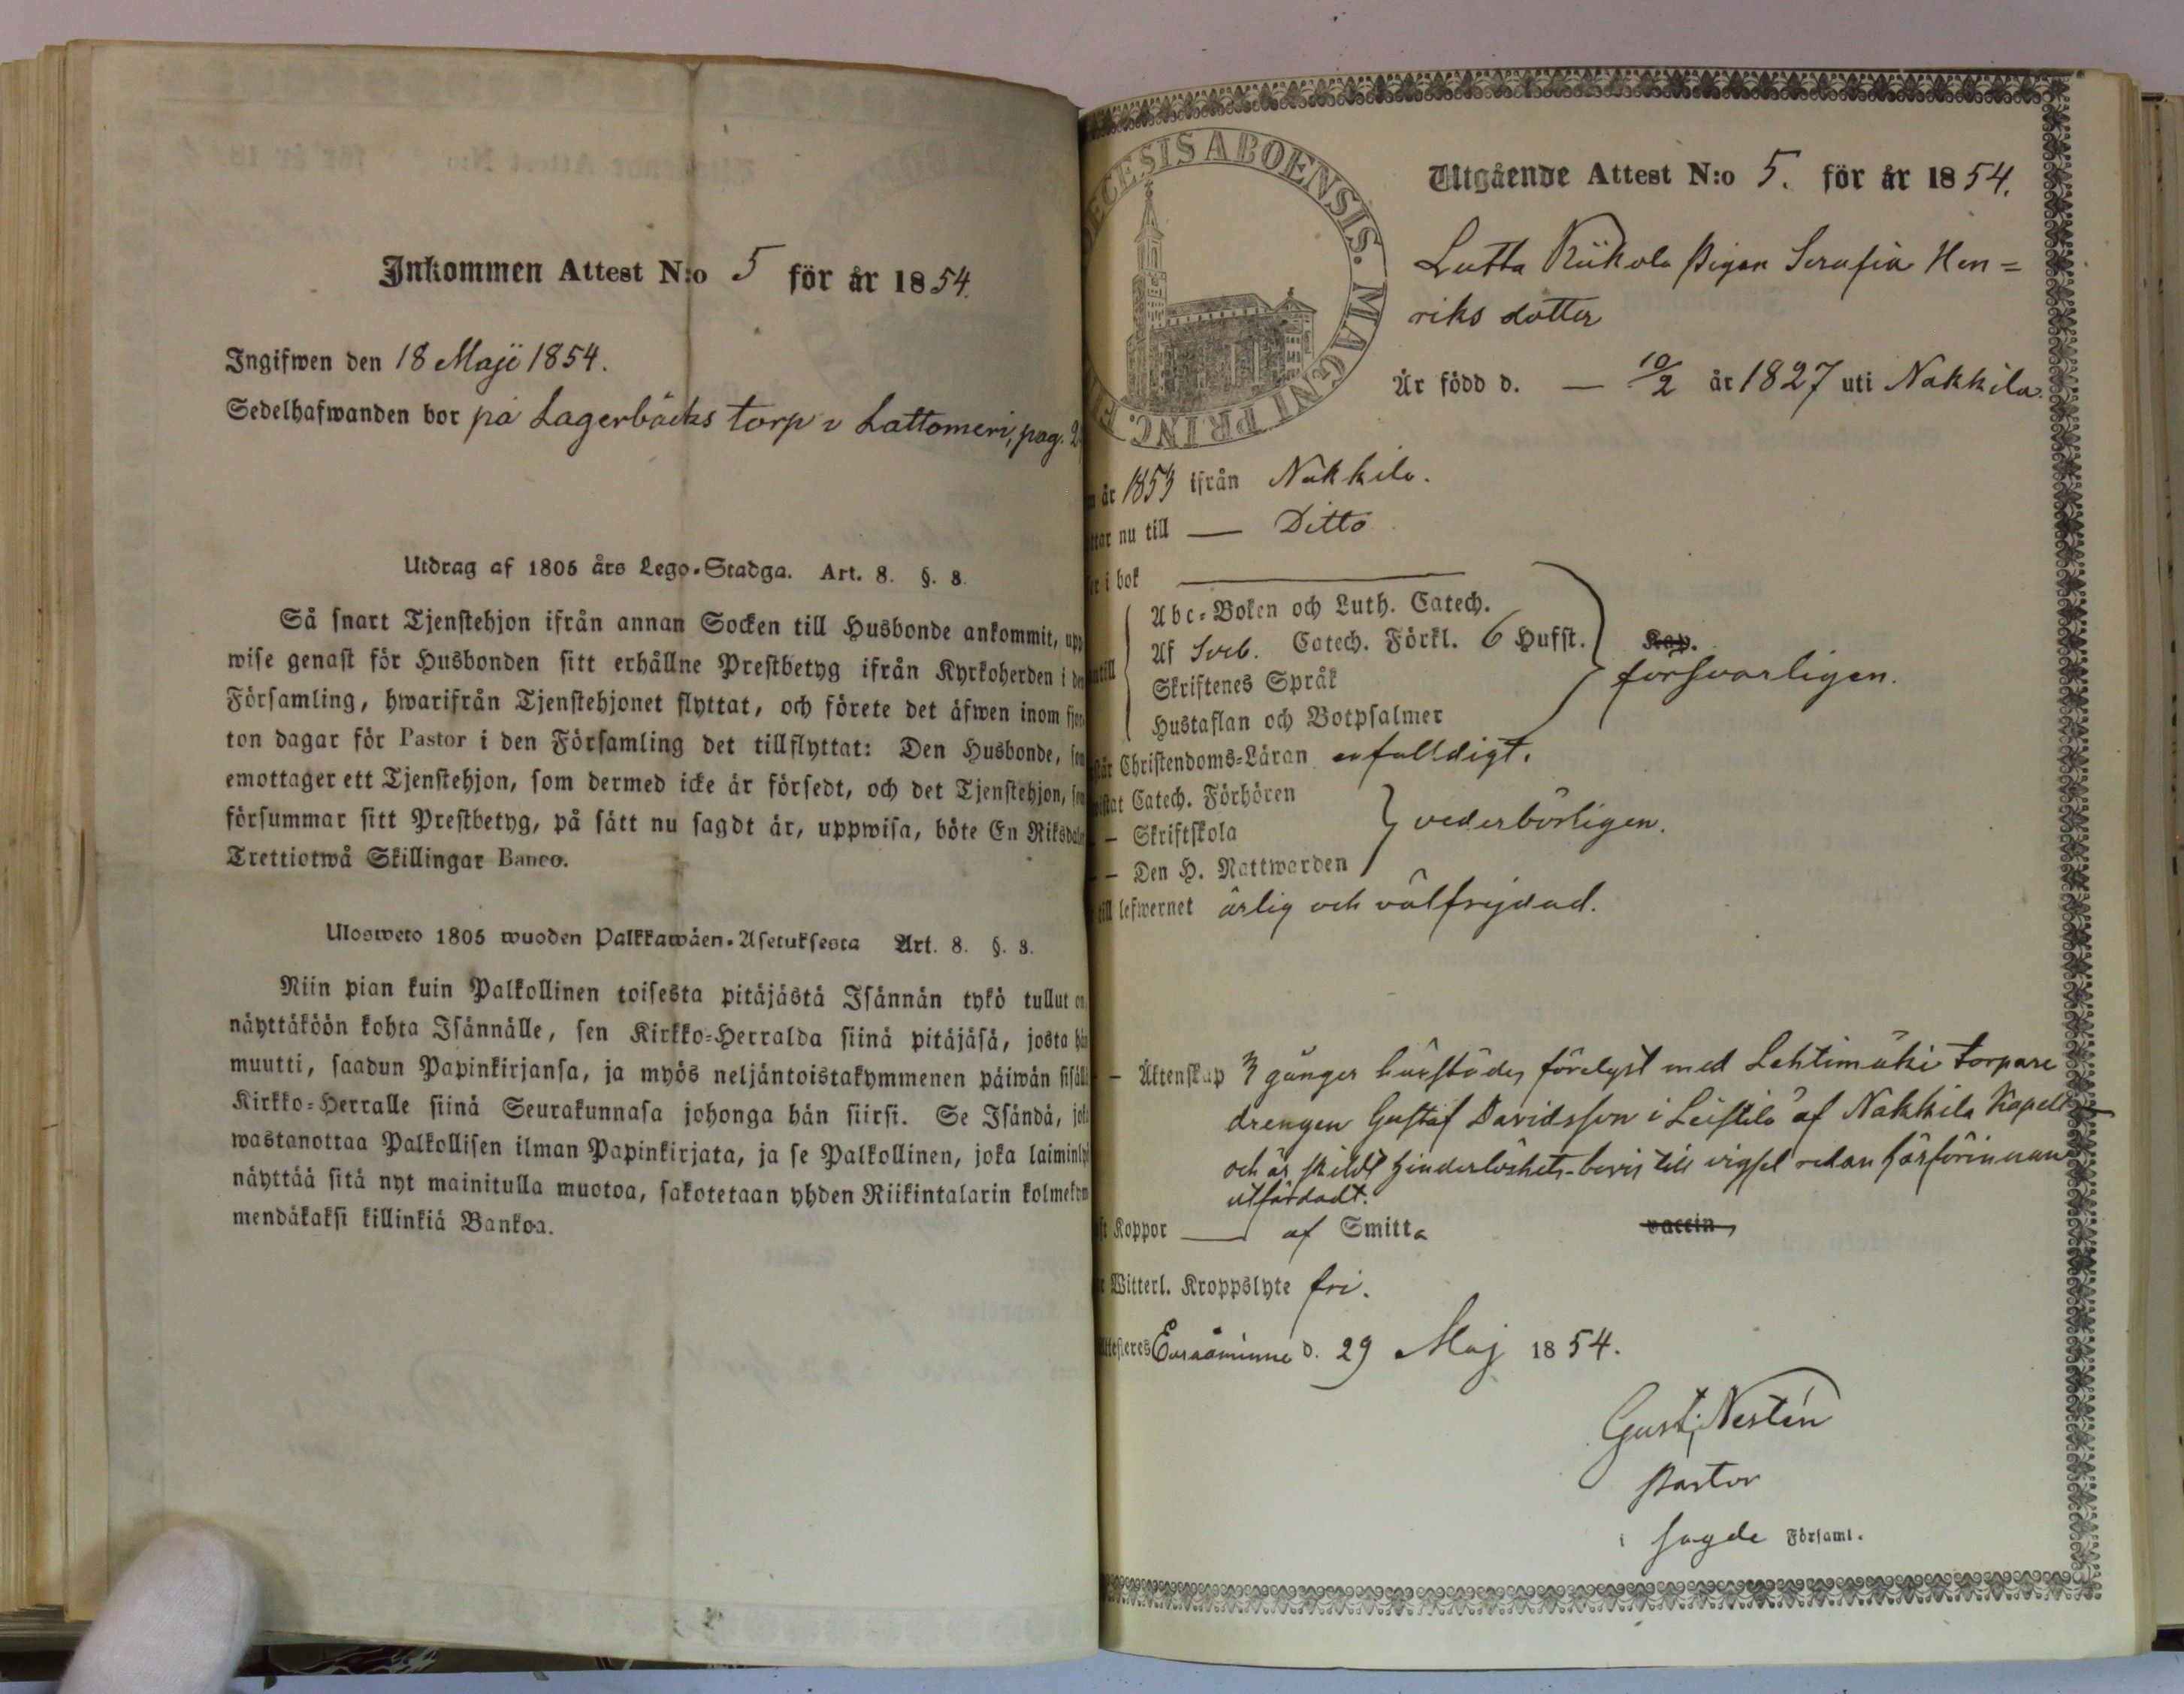 Inkommen Attest N:o 5 för år 1854.
Ingifwen den 18 Maji 1854.
Sedelhafwanden bor på Lagerbäcks torp i Lattomeri, pag. 2
Utdrag af 1805 års Lego-Stadga. Art. 8. §. 8.
Så snart Tjenstehjon ifrån annan Socken till Husbonde ankommit, upp
wise genast för Husbonden sitt erhållne Prestbetyg ifrån Kyrkoherden i den
Församling, hwarifrån Tjenstehjonet flyttat, och förete det äfwen inom fjor
ton dagar för Pastor i den Församling det tillflyttat: Den Husbonde, som
emottager ett Tjenstehjon, som dermed icke är försedt, och det Tjenstehjon, som
försummar sitt Prestbetyg, på sätt nu sagdt är, uppwisa, böte En Riksdaler
Trettiotwå Skillingar Banco.
Ulosweto 1805 wuoden Palkkawäen-Asetuksesta Art. 8. §. 8.
Niin pian kuin Palkollinen toisesta pitäjästä Isännän tykö tullut on,
näyttäköön kohta Isännälle, sen Kirkko-Herralda siinä pitäjäsä, josta hän
muutti, saadun Papinkirjansa, ja myös neljäntoistakymmenen päiwän sisällä
Kirkko-Herralle siinä Seurakunnasa johonga hän siirsi. Se Isändä, joka
wastanottaa Palkollisen ilman Papinkirjata, ja se Palkollinen, joka laiminlyö
näyttää sitä nyt mainitulla muotoa, sakotetaan yhden Riikintalarin kolmekym
mendäkaksi killinkiä Bankoa.
DECESIS ABOENSIS. MAGNI PRINC. F
Utgående Attest N:o 5. för år 1854.
Lutta Riikola Pigan Serafia Hen=
riks dotter
Är född d. — 10/2 år 1827 uti Nakkila.
n år 1853 ifrån Nakkila.
ttar nu till — Ditto
er i bok
Abc-Boken och Luth. Catech.
Af Sveb. Catech. Förkl. 6 Hufst.
Kap.
försvarligen.
ntill
Skriftenes Språk
Hustaflan och Botpsalmer
står Christendoms-Läran enfalldigt.
wistat Catech. Förhören
— Skriftskola
vederbörligen.
— Den H. Nattwarden
till lefwernet ärlig och välfrejdad.
— Äktenskap 3 gånger härstädes förelyst med Lehtimäki torpare
drengen Gustaf Davidsson i Leistilä af Nakkila Kapell
och är skildt hinderlöshets-bevis till vigsel redan härförinnan
utfärdadt.
ft Koppor — af Smitta vaccin
r Witterl. Kroppslyte fri.
Attesteres Euraåminne d. 29 Maj 1854.
Gust. Nestén
Pastor
i sagde Församl.